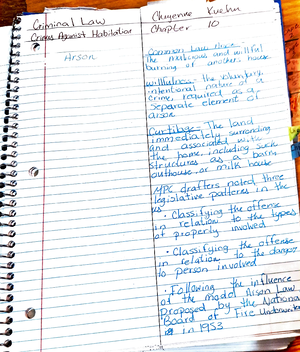 Criminal Law Cheyenne Kuehn
Crimes Against Habitation Chapter 10
Arson
Common Law Arson
The malicious and willful
burning of another house
willfulness - the voluntary,
intentional nature of a
crime, required as a
separate element of
arson
Curtilage - The land
immediately surronding
and associated with
the home, including such
structures as a barn,
outhouse, or milk house
MPC drafters noted three
legislative patterns in the
US
• Classifying the offense
in relation to the types
of property involved
• Classifying the offense
in relation to the danger
to person involved
• Following the influence
of the model Arson Law
Proposed by the National
Board of Fire Underwriters
in 1953